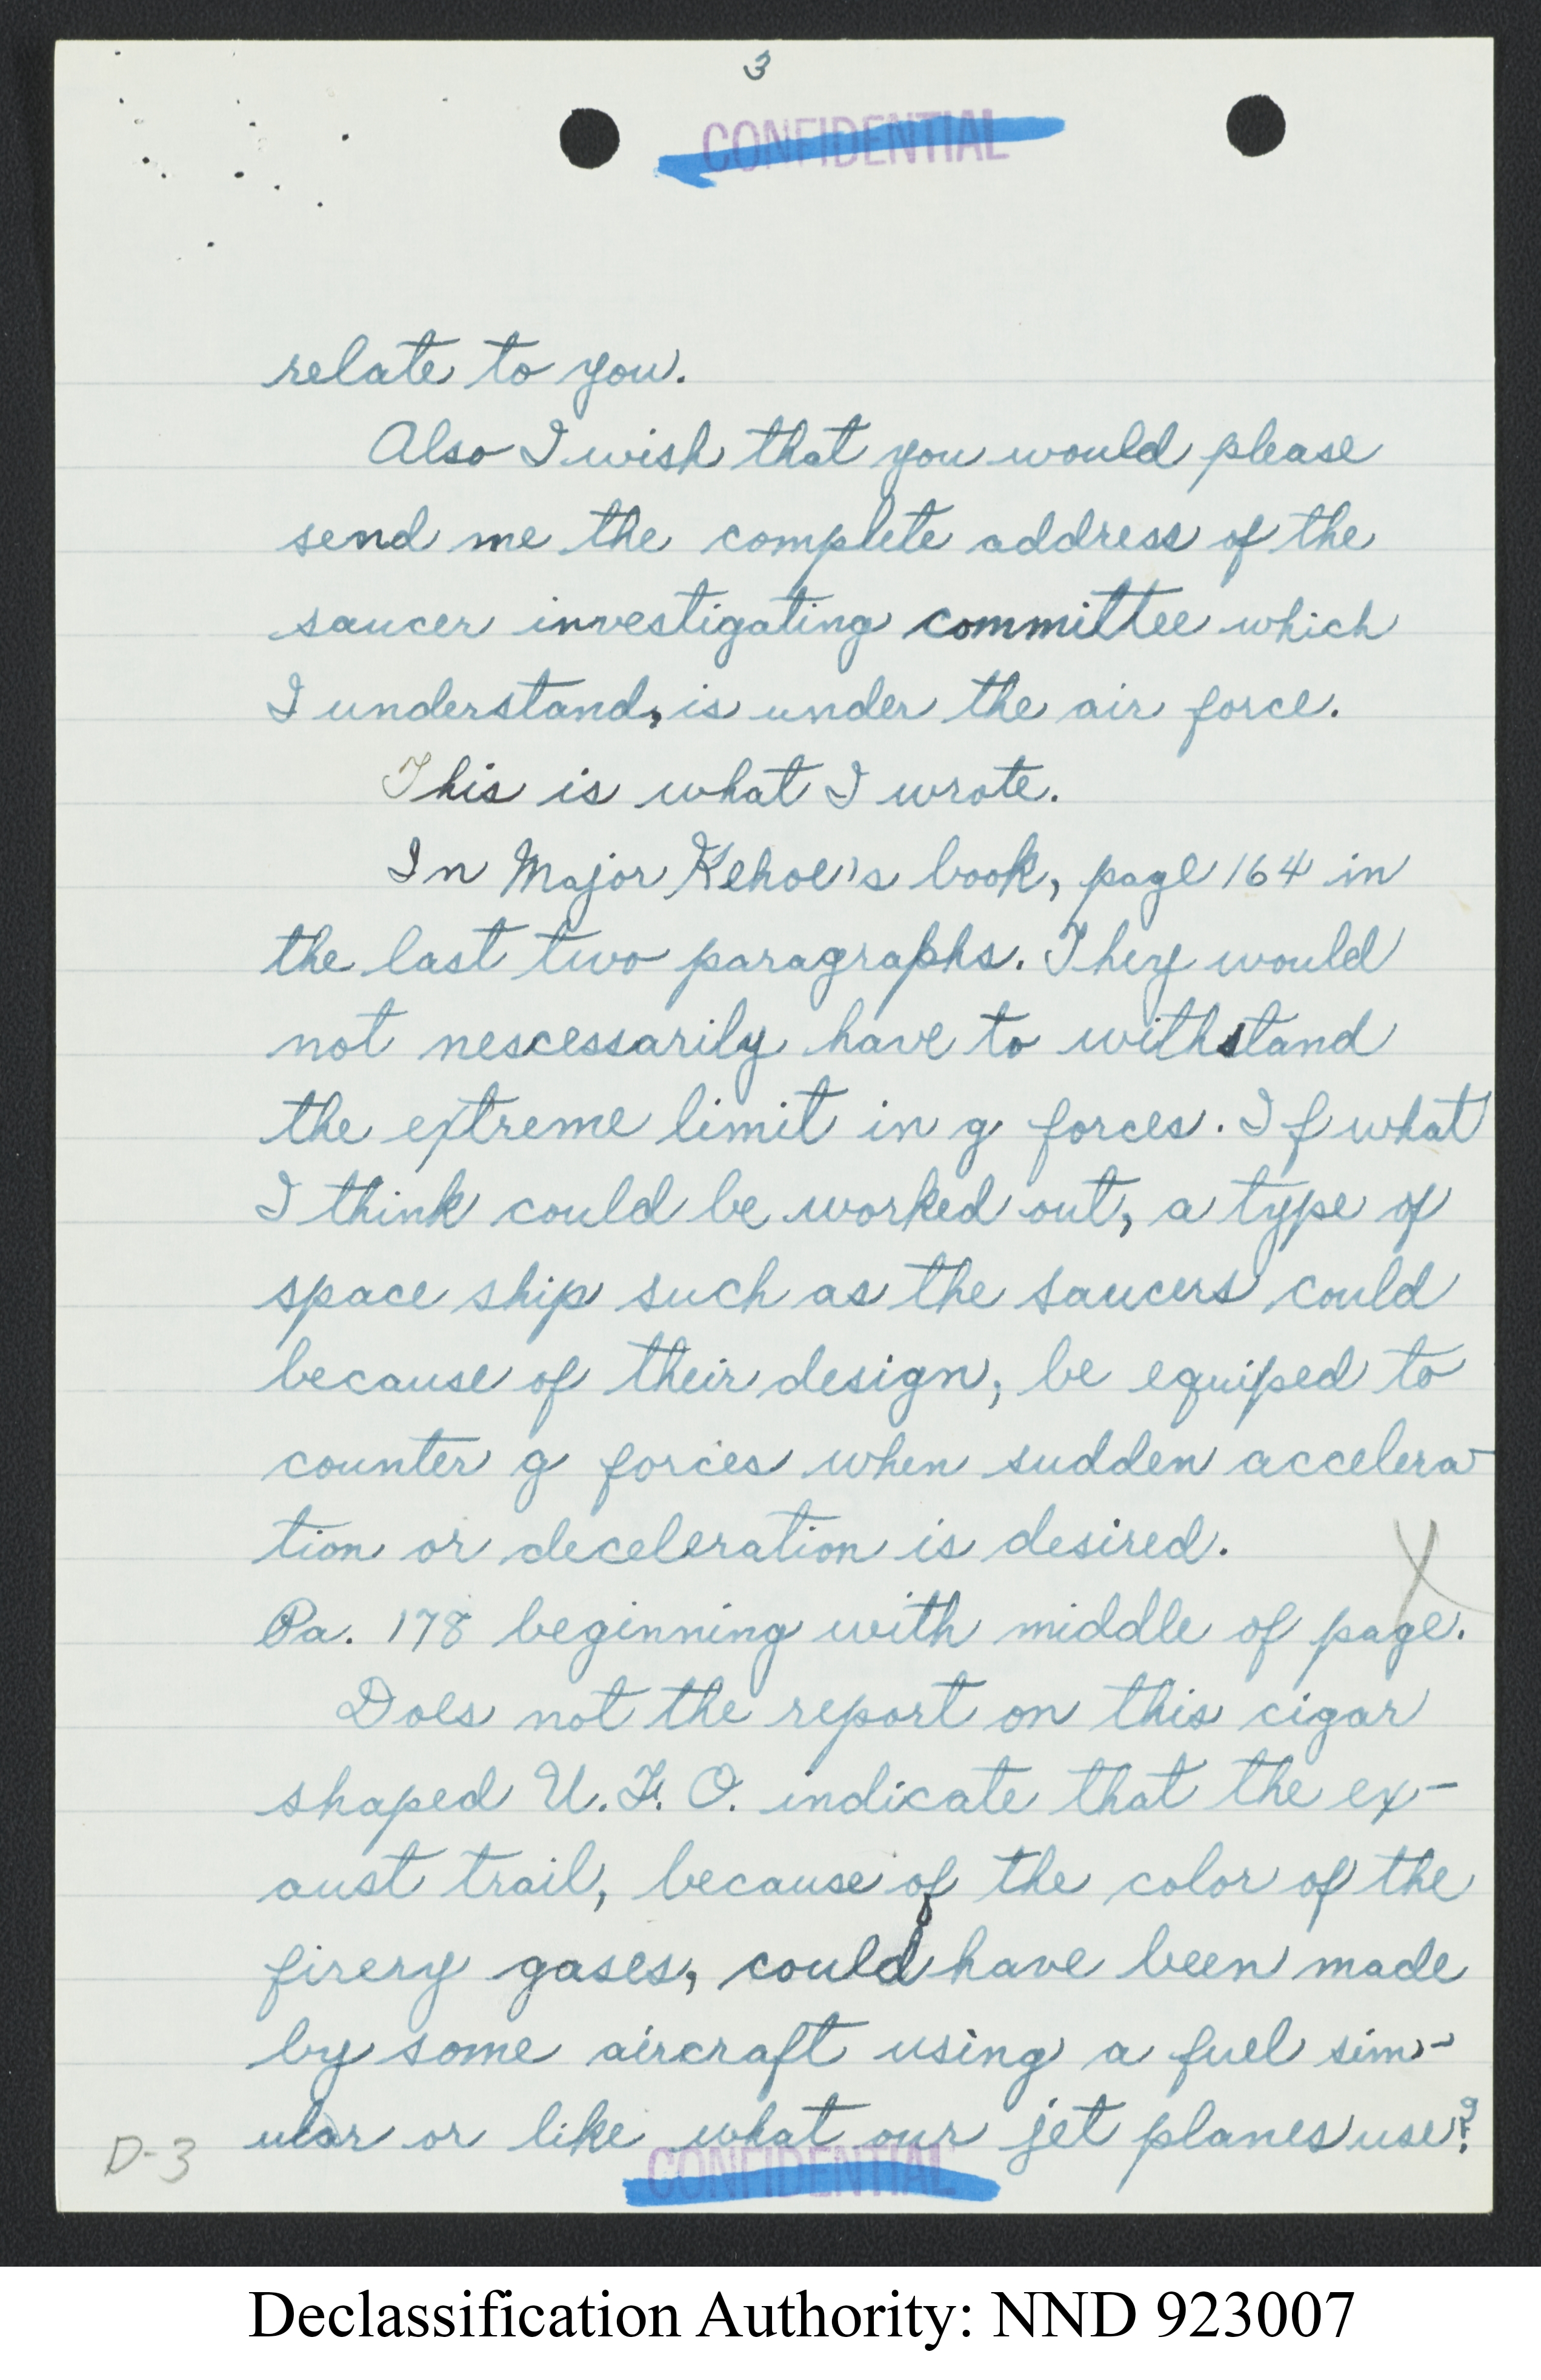 3
CONFIDENTIAL
relate to you.
Also I wish that you would please
send me the complete address of the
saucer investigating committee which
I understand, is under the air force.
This is what I wrote.
In Major Kehoe's book, page 164 in
the last two paragraphs. They would
not nescessarily have to withstand
the extreme limit in g forces. If what
I think could be worked out, a type of
space ship such as the saucers could
because of their design, be equiped to
counter g forces when sudden accelera-
tion or deceleration is desired.
X
Pa. 178 beginning with middle of page.
Does not the report on this cigar
shaped U.F.O. indicate that the ex-
aust trail, because of the color of the
firery gases, could have been made
by some aircraft using a fuel sim-
ular or like what our jet planes use?
D-3
CONFIDENTIAL
Declassification Authority: NND 923007